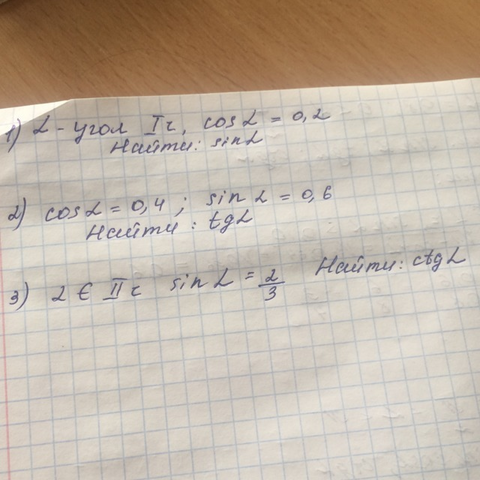 1) α - угол I ч, cos α = 0,2
Найти: sin α
2) cos α = 0,4 ; sin α = 0,6
Найти : tg α
3) α ∈ II ч sin α = 2/3 Найти: ctg α